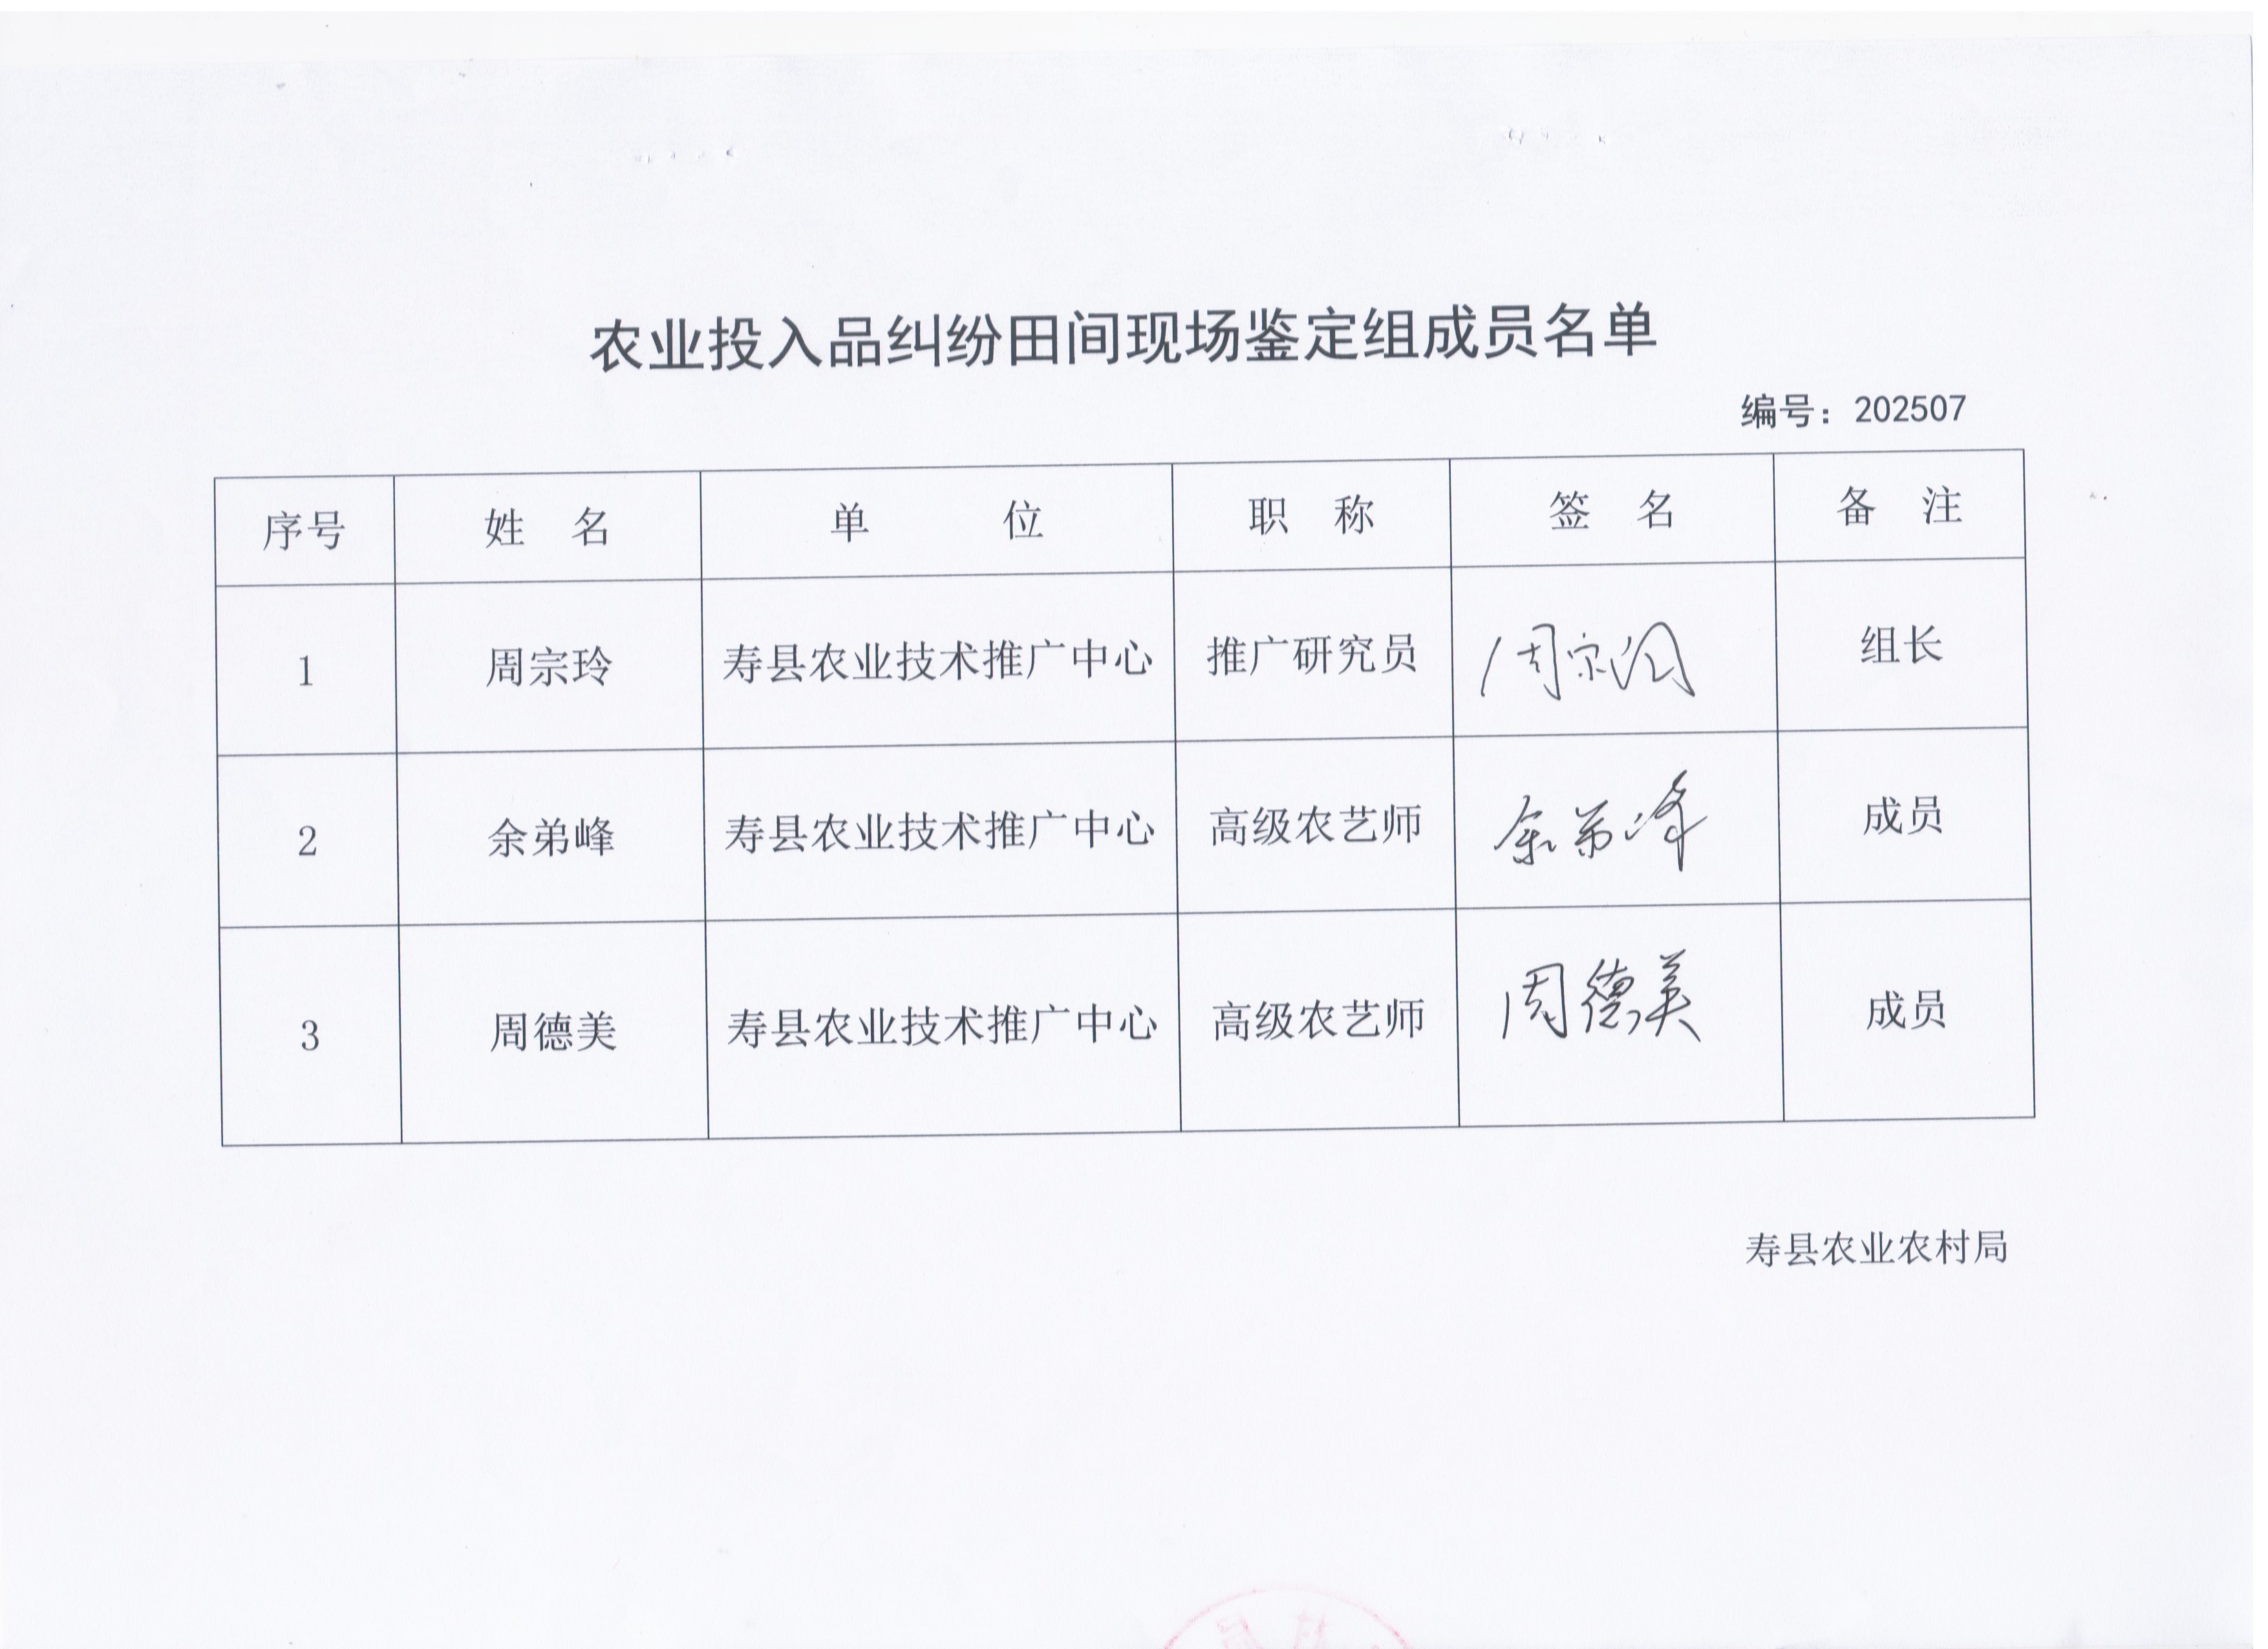 农业投入品纠纷田间现场鉴定组成员名单
编号：202507
序号 姓 名 单 位 职 称 签 名 备 注
1 周宗玲 寿县农业技术推广中心 推广研究员 周宗玲 组长
2 余弟峰 寿县农业技术推广中心 高级农艺师 余弟峰 成员
3 周德美 寿县农业技术推广中心 高级农艺师 周德美 成员
寿县农业农村局